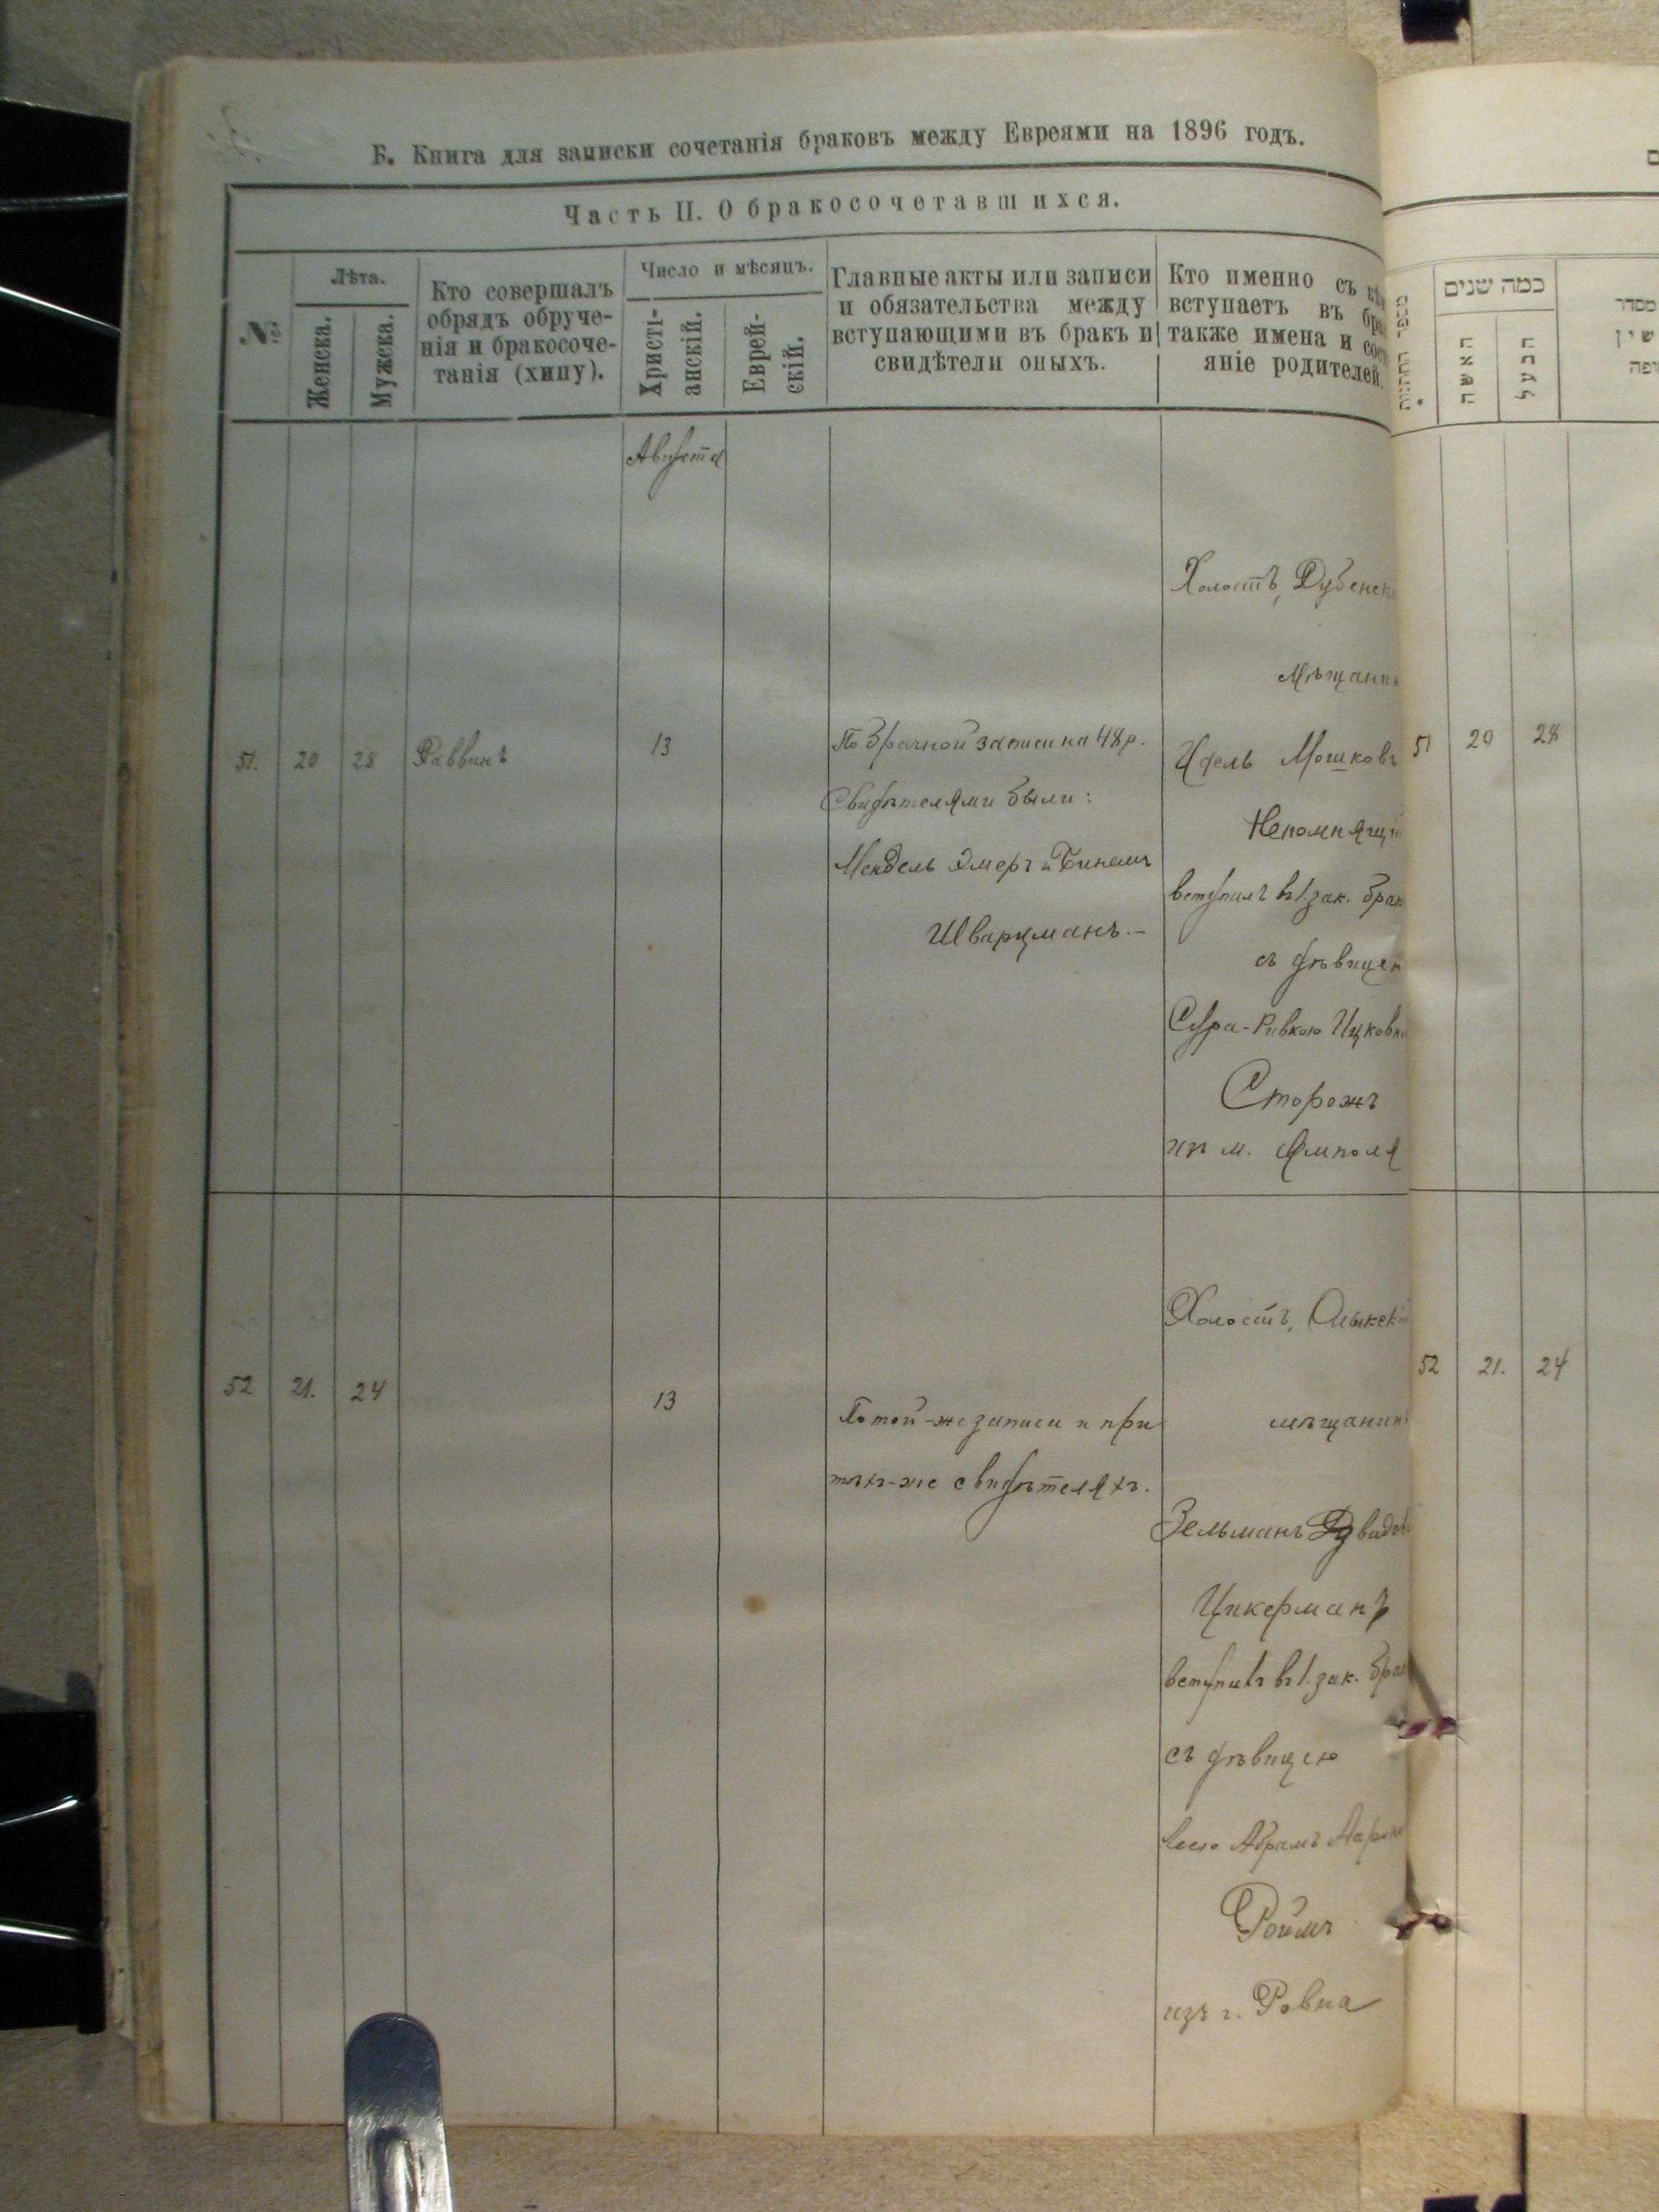 Б. Книга для записки сочетанія браковъ между Евреями на 1896 годъ.
Часть II. О бракосочетавшихся.
№
Лѣта.
Женска.
Мужеска.
Кто совершалъ
обрядъ обруче-
нія и бракосоче-
танія (хипу).
Число и мѣсяцъ.
Христі-
анскій.
Еврей-
скій.
Главные акты или записи
и обязательства между
вступающими въ бракъ и
свидѣтели оныхъ.
Кто именно съ
вступаетъ въ
также имена и
яніе родителей.
Августа
51. 20 28 Раввинъ 13
По брачной записи на 48 р.
Свидѣтелями были:
Мендель Эмеръ и Бинемъ
Шварцманъ.-
Холостъ, Дубенск
Мѣщанин
Идель Мошковъ
Непомнящій
вступилъ въ 1. зак. брак
съ дѣвицею
Сура-Ривкою Ицковн
Сторожъ
изъ м. Ямполя
52 21. 24 13
По той-же записи и при
тѣхъ-же свидѣтеляхъ.
Холостъ, Олыкскій
мѣщанинъ
Зельманъ Давидов
Цикерманъ
вступилъ въ 1. зак. брак
съ дѣвицею
Абрамъ
Ройтъ
изъ г. Ровна
כמה שנים
האשה
הבעל
מסדר
51 20 28
52 21. 24